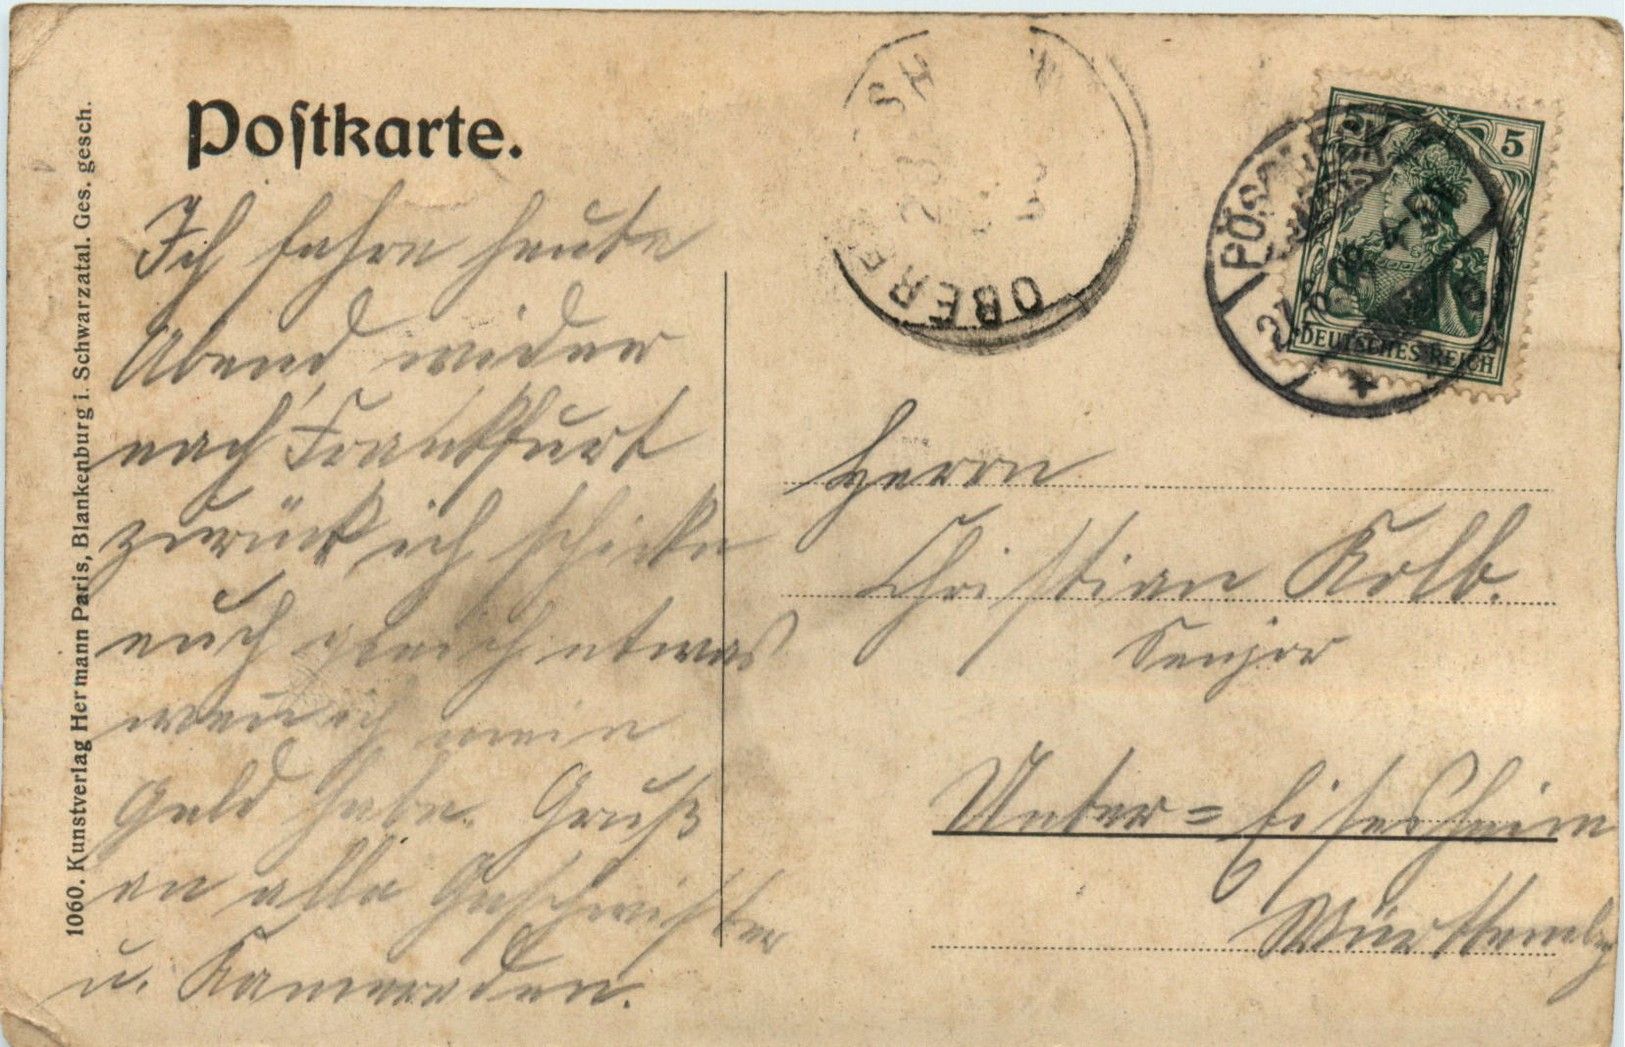 Postkarte.
1060. Kunstverlag Hermann Paris, Blankenburg i. Schwarzatal. Ges. gesch.
Ich fahre heute
Abend wider
nach Frankfurt
zurück ich schicke
euch gleich etwas
wen ich mein
Geld habe. Gruß
an alle Geschwister
u. Kameraden.
OBEREISESH
PÖSSNECK
5
DEUTSCHES REICH
Herrn
Christian Kolb.
Senjor
Unter=Eisesheim
Württemberg